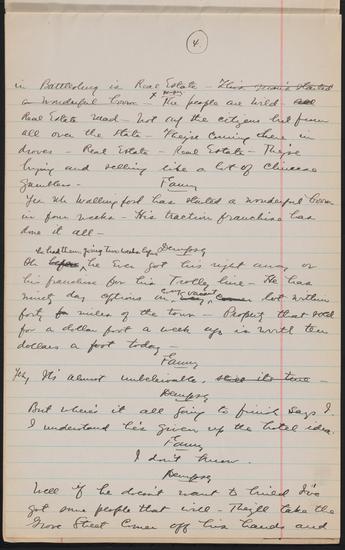 4
in Battlesburg is Real Estate - This music started
a wonderful boom - The people are wild - all
Real Estate mad - Not only the citizens but from
all over the state - They're coming there in
droves - Real Estate - Real Estate - They're
buying and selling like a lot of Chinese
gamblers -
Fanny
Yes Mr Wallingford has started a wonderful boom
in four weeks - His traction franchise has
done it all -
Dempsey
he had them going two weeks before
Oh before, he ever got his right away or
his franchise for his Trolley line - He has
ninety day options on every vacant, corner lot within
forty miles of the town - Property that sold
for a dollar foot a week ago is worth ten
dollars a foot today -
Fanny
Yes, It's almost unbelievable, still its true -
Dempsey
But where's it all going to finish says I.
I understand he's given up the hotel idea.
Fanny
I don't know.
Dempsey
Well if he doesn't want to build I've
got some people that will - They'll take the
Grove Street Corner off his hands and